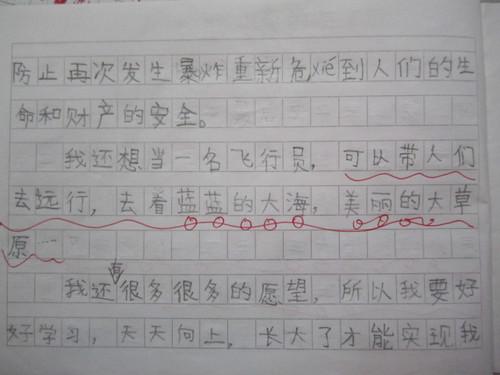 防止再次发生暴炸重新危及到人们的生
命和财产的安全。
我还想当一名飞行员，可以带人们
去远行，去看蓝蓝的大海，美丽的大草
原…
有
我还很多很多的愿望，所以我要好
好学习，天天向上，长大了才能实现我